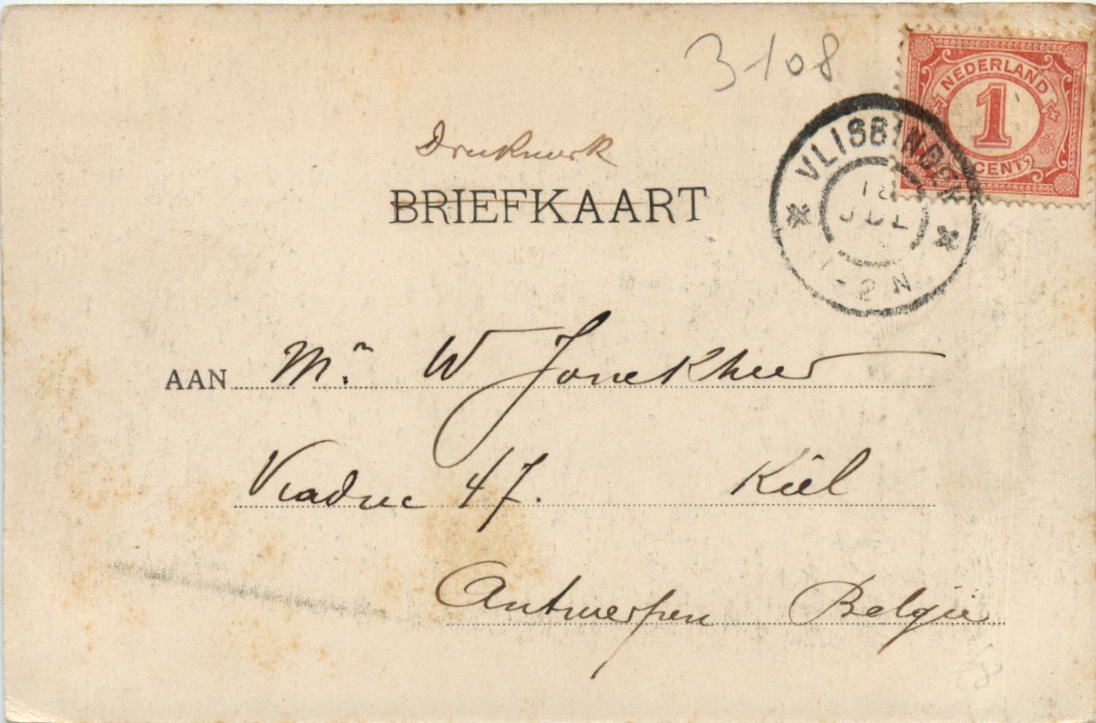 3108
NEDERLAND
1
CENT
VLISSINGEN
18
JUL
1-2 N
Drukwerk
BRIEFKAART
AAN Mr. W Jonckheer
Viaduc 47. Kiel
Antwerpen België